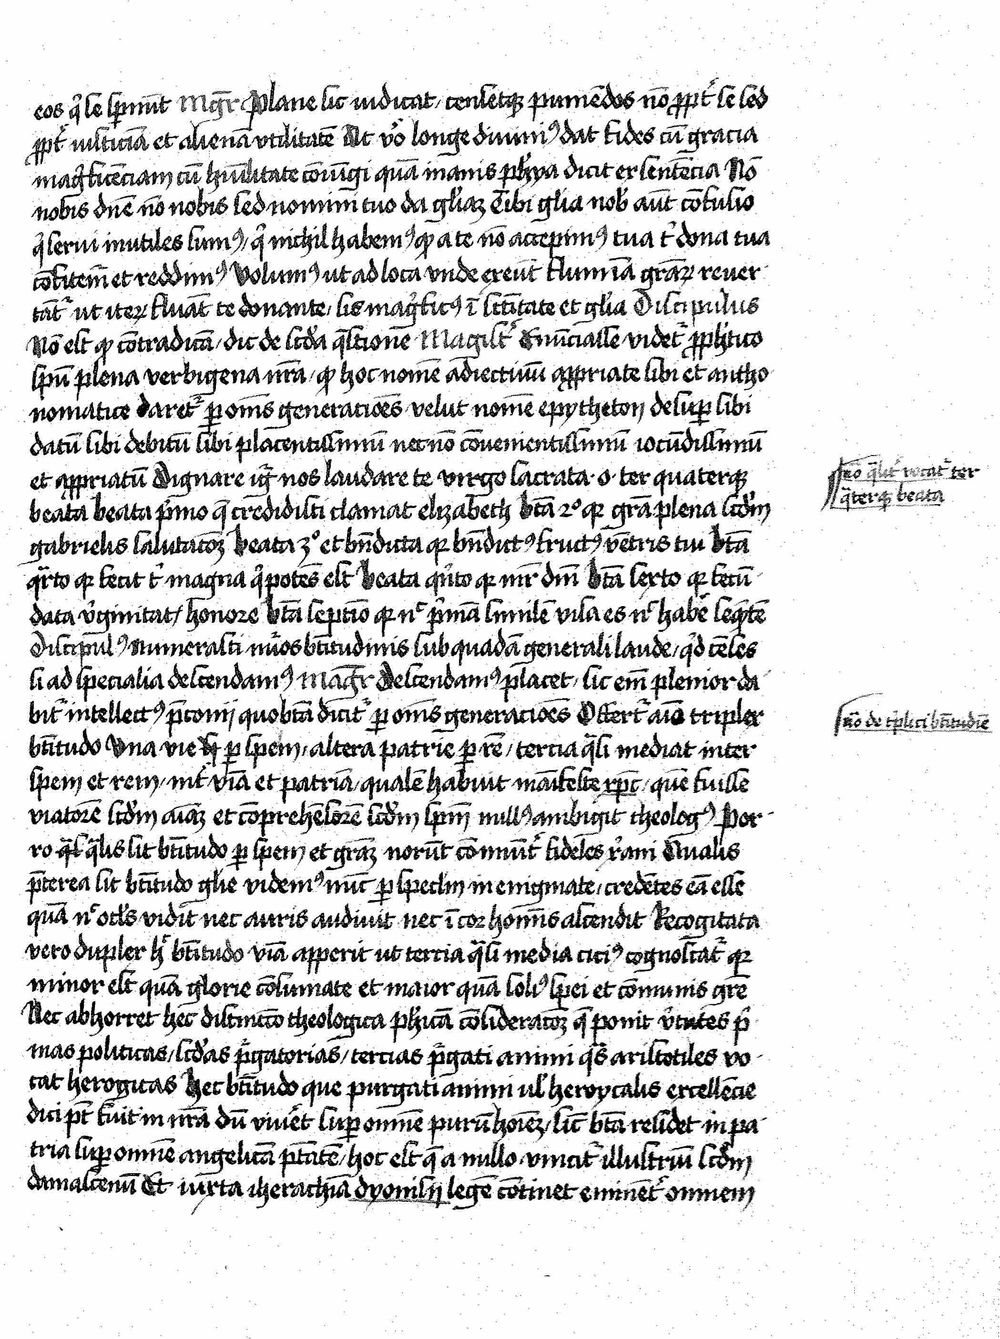 eos q̄ se sp̄nūt Mgr̄ Plane sic iudicat / censetqꝫ puniēdos nō ꝓpt̄ se sed
ꝓpt̄ iusticiā et alienā vtilitatē At v̊o longe diuini⁹ dat fides cū gracia
magͥficēciam cū hūilitate cōiūgi quā inanis ph̄ya dicit er sentēcia Nō
nobis dn̄e nō nobis sed nomini tuo da gl̄iaꝫ Tibi gl̄ia nob̄ aūt cōfusio
q̄ serui inutiles sum⁹ / q̄ nichil habem⁹ qꝫ a te nō accepim⁹ tua s̄t dona tua
cōfitem̄ et reddim⁹ Volum⁹ ut ad loca vnde exeūt flumīa grāꝝ reuer
tāt̄ ut iteꝝ fluāt te donante / sis magͥfic⁹ ī sc̄titate et gl̄ia Discipulus
Nō est qꝫ cōtradicā / dic de scd̄a q̄stione Magist̄ Enūciasse videt̄ ꝓph̄tico
sp̄u plena verbigena nr̄a / qꝫ hoc nomē adiectiuū appriate sibi et antho
nomatice daret̄ ꝑ om̄s generacioēs velut nomē epytheton desuꝑ sibi
datū sibi debitū sibi placentissimū necnō cōuenientissimū iocūdissimū
et appriatū Dignare igr̄ nos laudare te virgo sacrata · o · ter quaterqꝫ
beata beata pͥmo q̄ credidisti clamat elizabeth b̄tā 2º qꝫ grā plena scd̄m
gabrielis salutacōꝫ beata 3º et bn̄dicta qꝫ bn̄dict⁹ fruct⁹ vētris tui b̄tā
qͣrto qꝫ fecit t̄ magna q̄ potēs est Beata qͥnto qꝫ mr̄ dn̄i b̄tā sexto qꝫ fecū
data v̄ginitat / honore b̄tā septīo qꝫ nͨ pͥmā similē visa es nͨ habē seqͣtē
Discipul⁹ Numerasti nūos bt̄itudinis sub quadā generali laude / qͥd cēses
si ad specialia descendam⁹ Magr̄ Descendam⁹ placet / sic em̄ plenior da
bit̄ intellect⁹ p̄conij quo b̄tā dicit̄ ꝑ om̄s generacioēs Offert̄ aīo triplex
bt̄itudo Vna vie ꝑ spem / altera patrie ꝑ rē / tercia q̄si mediat inter
spem et rem / int̄ viā et patriā / qualē habuit manifeste xp̄c / quē fuisse
viatorē scd̄m aīaꝫ et cōprehēsorē scd̄m spm̄ null⁹ ambigit theolog⁹ Por
ro q̄lis sit bt̄itudo ꝑ spem et grāꝫ norūt cōmuit̄ fideles xͥani Qualis
p̄terea sit bt̄itudo gl̄ie videm⁹ nūc ꝑ specl̄m in enigmate / credētes eā esse
quā nͨ ocl̄s vidit nec auris audiuit nec ī cor hom̄is ascendit Recogitata
vero duplex h̄ bt̄itudo viā apperit ut tercia q̄si media cici⁹ cognoscat̄ qꝫ
minor est quā glorie cōsumate et maior quā soli⁹ spei et cōmunis gr̄e
Nec abhorret hec distinctio theologica ph̄icā cōsideracōꝫ q̄ ponit v̄tutes pͥ
mas politicas / scd̄as p̄gatorias / tercias p̄gati animi qͣs aristotiles vo
cat heroycas Hec bt̄itudo que purgati animi ul̄ heroycalis excellēcie
dici pt̄ fuit in nr̄a dū viuēt suꝑ omnē purū hoīeꝫ / sic̄ b̄tā residet in pa
tria suꝑ omnē angelicā ptātē / hoc est q̄ a nullo vincit̄ illustriū scd̄m
damascenū Et iuxta iherachiā dyonisij legē cōtinet eminēt̄ omnem
nō q̄lit̄ vocat̄ ter
qͣterqꝫ beata
nō de tͥplici bt̄itudīe